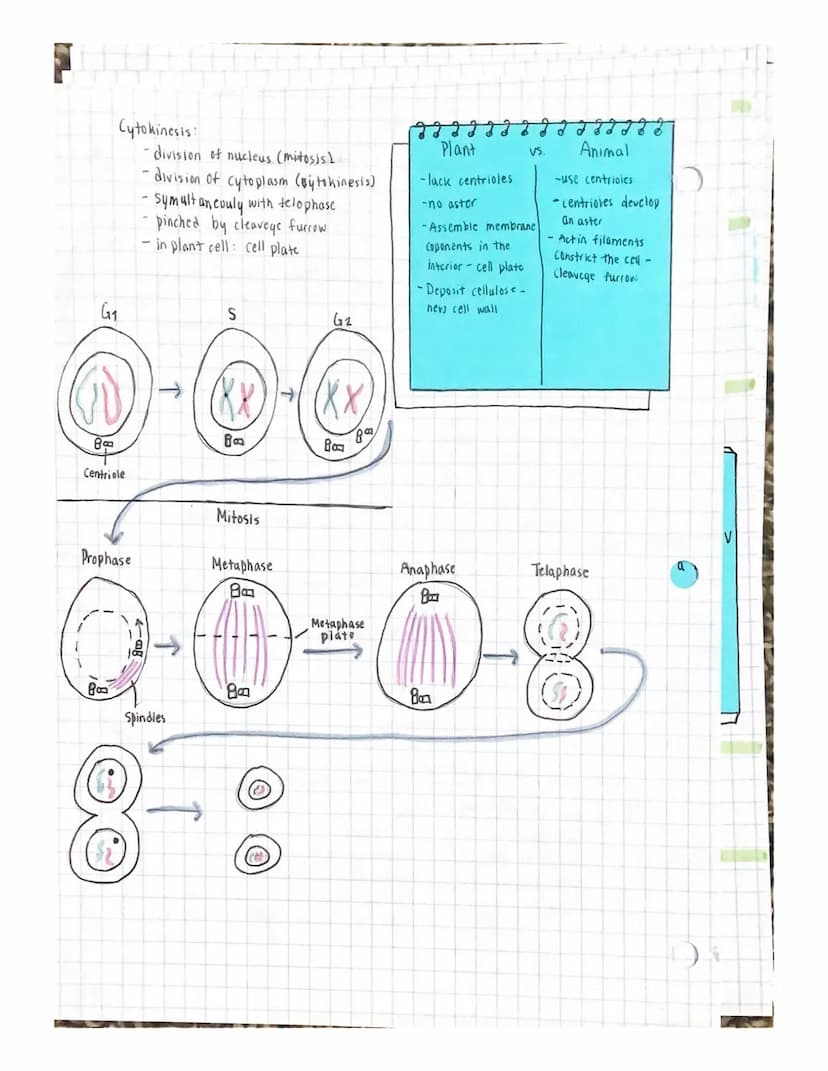 Cytokinesis:
- division of nucleus (mitosis)
- division of cytoplasm (cytokinesis)
- symultaneouly with telophase
- pinched by cleavege furrow
- in plant cell: cell plate
Plant vs. Animal
- lack centrioles
- no aster
- Assemble membrane
coponents in the
interior - cell plate
- Deposit cellulose -
new cell wall
- use centrioles
- centrioles develop
an aster
- Actin filaments
constrict the cell -
cleavege furrow
G1 S G2
Centriole
Mitosis
Prophase Metaphase Anaphase Telaphase
Metaphase
plate
Spindles
V
a